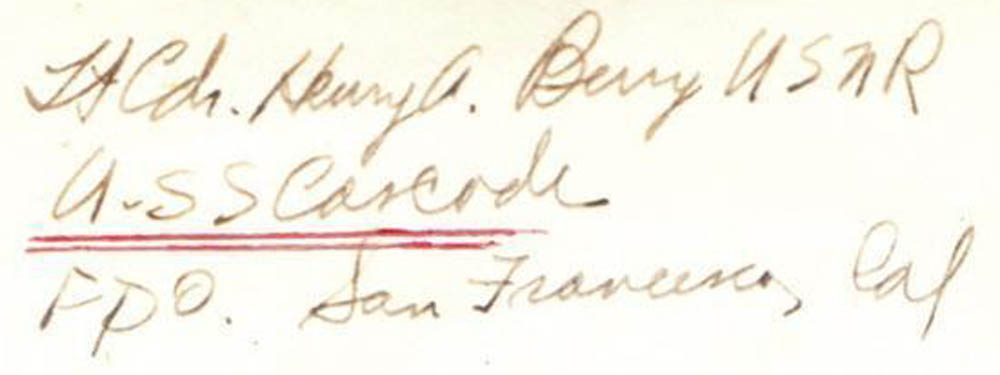 Lt Cdr. Henry A. Berry USNR
U.S.S Cascade
F.P.O. San Francisco, Cal